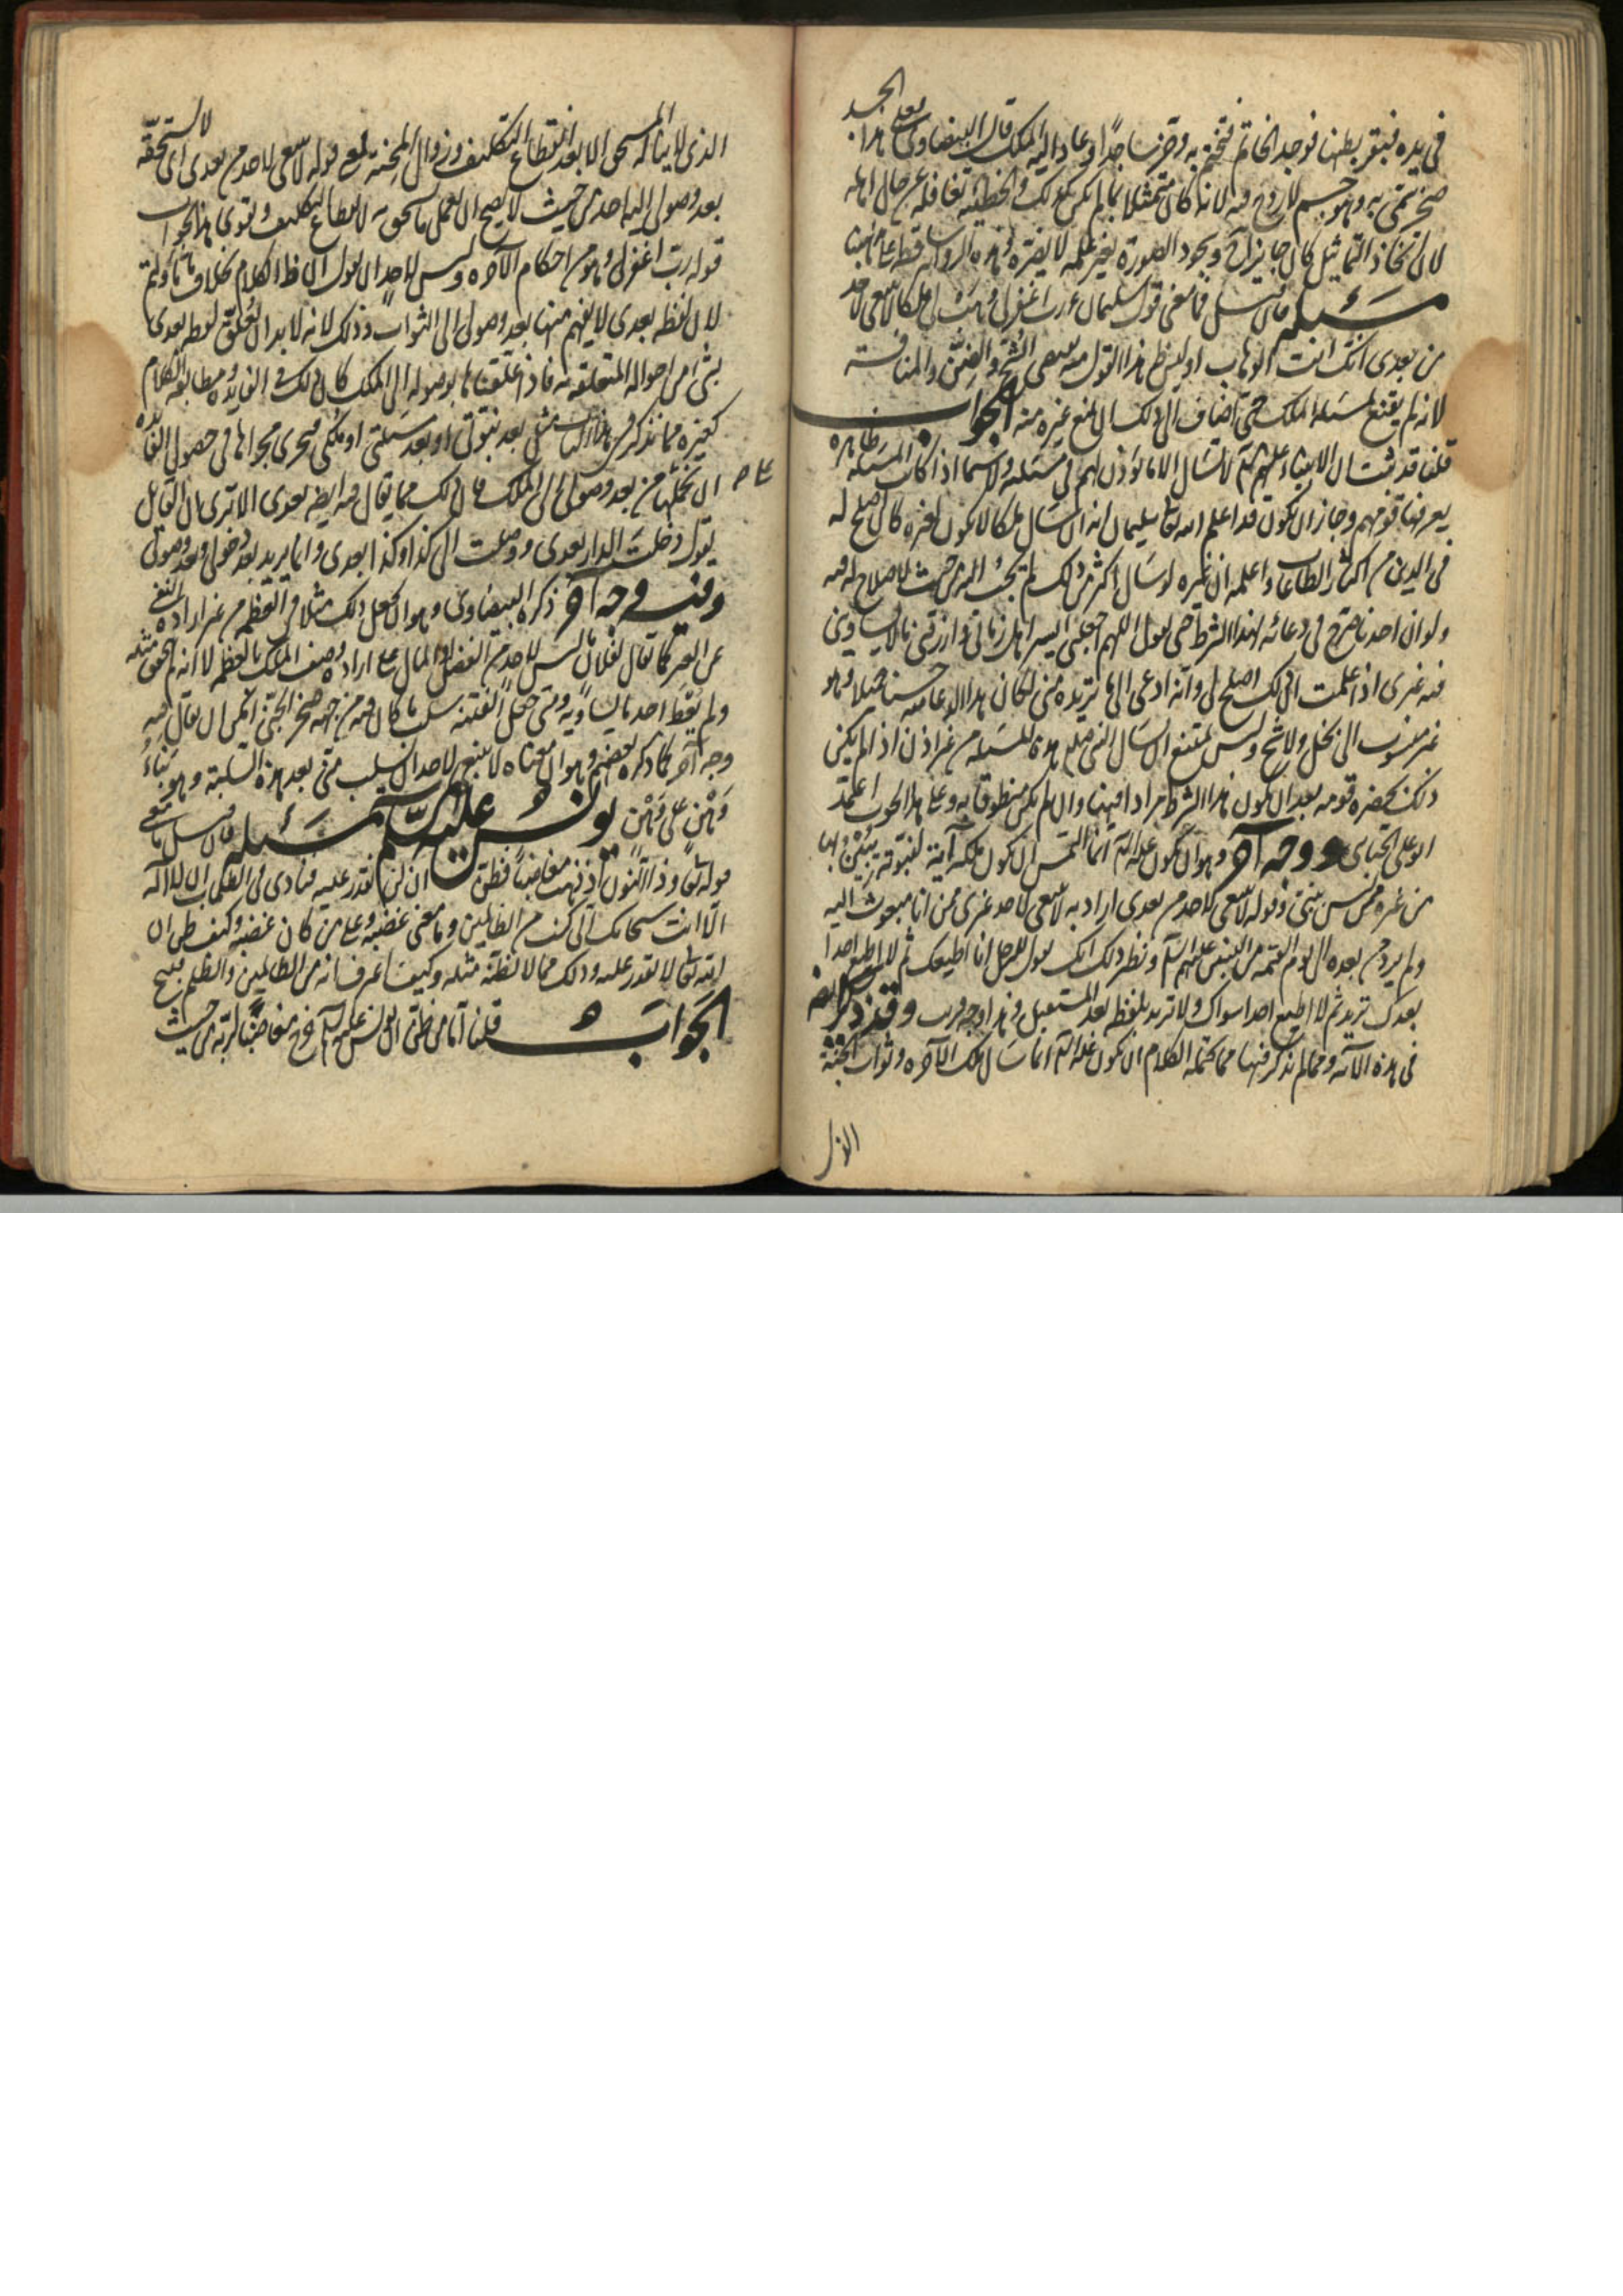 في يده فبقر بطنها فوجد الخاتم فتختم به وخر ساجدا وعاد اليه الملك قال البيضاوي فعلى هذا الجسد
صخر سمي به وهو جسم لا روح فيه لانه كان متمثلا بما لم يكن كذلك والخطيئة تغافله عن حال اهله
لان اتخاذ التماثيل كان جايزا ح وسجود الصورة بغير علمه لا يضره وهذه الرواية
مسئلة فان قيل فما معنى قول سليمان ع رب اغفر لي وهب لي ملكا لا ينبغي لاحد
من بعدي انك انت الوهاب اوليس ظاهر هذا القول منه يقتضي الشح والضن والمنافسة
لانه لم يقنع بمسئلة الملك حتى اضاف الى ذلك ان يمنع غيره منه الجواب
قلنا قد ثبت ان الانبياء عليهم السلم لا تسأل الا ما يؤذن لهم في مسئلته ولا سيما اذا كانت المسئلة ظاهرة
يعرفها قومهم وجاز ان يكون قد اعلم الله تعالى سليمان انه ان سأل ملكا لا يكون لغيره كان اصلح له
في الدين من اكثار الطاعات واعلمه ان غيره لو سأل اكثر من ذلك لم يجب اليه من حيث لا صلاح له فيه
ولو ان احدنا صرح في دعائه بهذا الشرط حتى يقول اللهم اجعلني ايسر اهل زماني وارزقني مالا يساويني
فيه غيري اذا علمت ان ذلك اصلح لي وانه ادعى الى ما تريده مني لكان هذا الدعا منه حسنا جميلا وهو
غير منسوب الى بخل ولا شح وليس يمتنع ان يسأل النبي صلعم هذه المسئلة من غير اذن اذا لم يكن
ذلك بحضرة قومه بعد ان يكون هذا الشرط مرادا فيها وان لم يكن منطوقا به وعلى هذا الجواب اعتمد
ابو علي الجبائي ووجه آخر وهو ان يكون عليه السلم انما التمس ان يكون ملكه آية لنبوته يتبين بها
من غيره ممن ليس بنبي وقوله لا ينبغي لاحد من بعدي اراد به لا ينبغي لاحد غيري ممن انا مبعوث اليه
ولم يرد من بعده الى يوم القيمة من النبيين عليهم السلم ونظير ذلك انك تقول للرجل انا اطيعك ثم لا اطيع احدا
بعدك تريد ثم لا اطيع احدا سواك ولا تريد بلفظ بعد المستقبل وهذا وجه قريب وقد ذكر ايضا
في هذه الآية ومما لم يذكر فيها مما يحتمله الكلام ان يكون عليه السلم انما سأل ملك الآخرة وثواب الجنة
الذي لا يناله المستحق الا بعد انقطاع التكليف وزوال المحنة فمعنى قوله لا ينبغي لاحد من بعدي اي لا يستحقه
بعد وصولي اليه احد من حيث لا يصح ان يعمل ما يستحق به لانقطاع التكليف ويقوي هذا الجواب
قوله رب اغفر لي وهو من احكام الآخرة وليس لاحد ان يقول ان ظاهر الكلام بخلاف ما تأولتم
لان لفظة بعدي لا يفهم منها بعد وصولي الى الثواب وذلك لانه لا بد ان تعلق لفظة بعدي
بشئ من احواله المتعلقة به فاذا علقناها بوصوله الى الملك كان ذلك في الفايدة ومطابقة الكلام
كغيره مما يذكر في هذا الباب مثل بعد نبوتي او بعد مسئلتي او ملكي فيجري مجراها في حصول الفايدة
ان نحملها من بعد وصولي الى الملك فان ذلك مما يقال فيه ايضا بعدي الا ترى ان القايل
يقول دخلت الدار بعدي ووصلت الى كذا وكذا بعدي وانما يريد بعد دخولي وبعد وصولي
وفيه وجه آخر ذكره البيضاوي وهو ان يكون ذلك مثلا في العظمة من غير ارادة النفي
عن الغير كما يقال لفلان ما ليس لاحد من الفضل والمال على ارادة وصف الملك بالعظمة لا انه لم يتحقق مثله
ولم يعط احد ما يساويه ومتى جعل الفتنة سلب ما كان فيه من جهة صخر الجني امكن ان يقال فيه
وجه آخر كما ذكره بعضهم وهو ان معناه لا ينبغي لاحد ان يسلبه مني بعد هذه السلبة وهو بناء
وهن على وهن يونس عليه السلم مسئلة فان قيل ما معنى
قوله تعالى وذا النون اذ ذهب مغاضبا فظن ان لن نقدر عليه فنادى في الظلمات ان لا اله
الا انت سبحانك اني كنت من الظالمين وما معنى غضبه وعلى من كان غضبه وكيف ظن ان
الله تعالى لا يقدر عليه وذلك مما لا يظنه مثله وكيف اعترف بانه من الظالمين والظلم قبيح
الجواب قلنا اما من ظن ان يونس عليه السلم خرج مغاضبا لربه من حيث